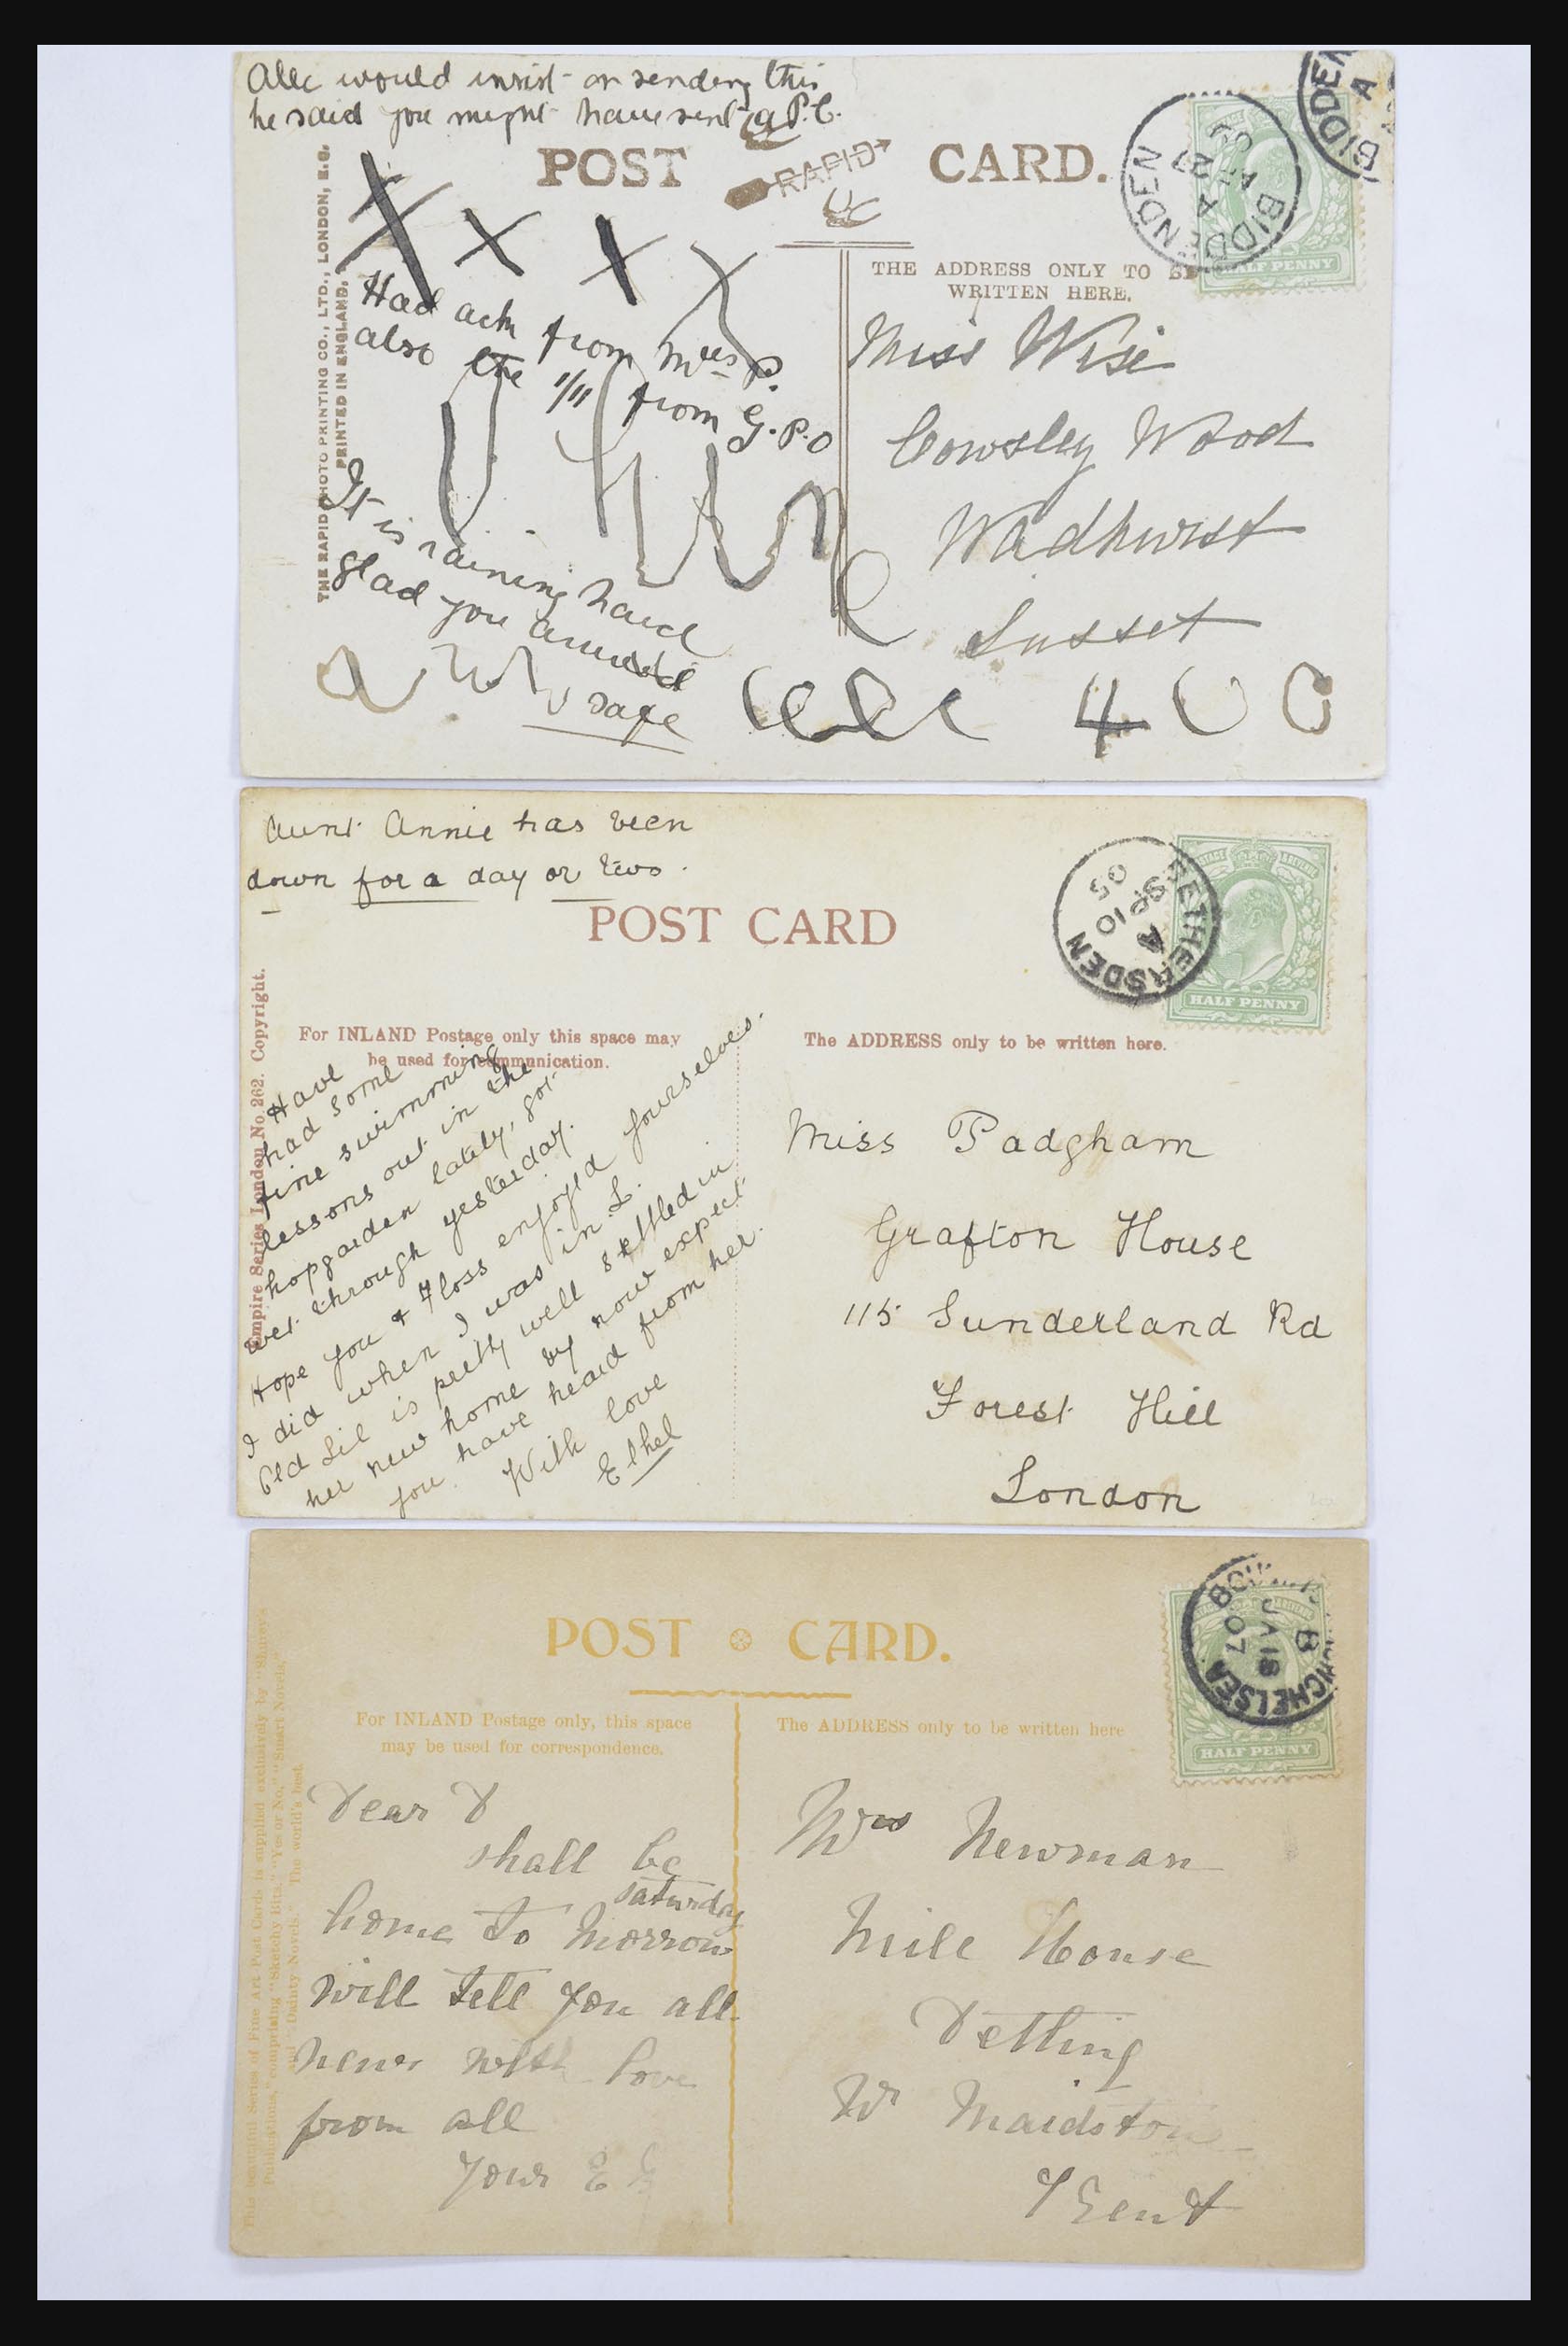 Alec would insist on sending this
he said you might have sent a P.C.
POST RAPID CARD.
THE RAPID PHOTO PRINTING CO., LTD., LONDON, E.C.
PRINTED IN ENGLAND.
BIDDENDEN
A
BIDDENDEN
A
HALF PENNY
THE ADDRESS ONLY TO BE
WRITTEN HERE.
Had ack from Mrs P.
also the 1/11 from G.P.O
It is raining hard
glad you arrived
safe
Miss Wise
Cowsley Wood
Wadhurst
Sussex
Aunt Annie has been
down for a day or two.
POST CARD
BETHERSDEN
A
SP 10
05
HALF PENNY
Empire Series London No. 262. Copyright.
For INLAND Postage only this space may
be used for communication.
The ADDRESS only to be written here.
Have
had some
fine swimming
lessons out in the
hopgarden lately, got
wet through yesterday.
Hope you & Floss enjoyed yourselves.
I did when I was in L.
Old Lil is pretty well settled in
her new home by now expect
you have heard from her.
With love
Ethel
Miss Padgham
Grafton House
115 Sunderland Rd
Forest Hill
London
POST CARD.
B
JA 18
07
HALF PENNY
This beautiful Series of Fine Art Post Cards is supplied exclusively by "Shurey's
Publications," comprising "Sketchy Bits," "Yes or No," "Smart Novels,"
and "Dainty Novels." The world's best.
For INLAND Postage only, this space
may be used for correspondence.
The ADDRESS only to be written here
Dear D
shall be
saturday
home to morrow
will tell you all
news with love
from all
Your E
Mrs Newman
Mill House
Detling
Nr Maidstone
Kent